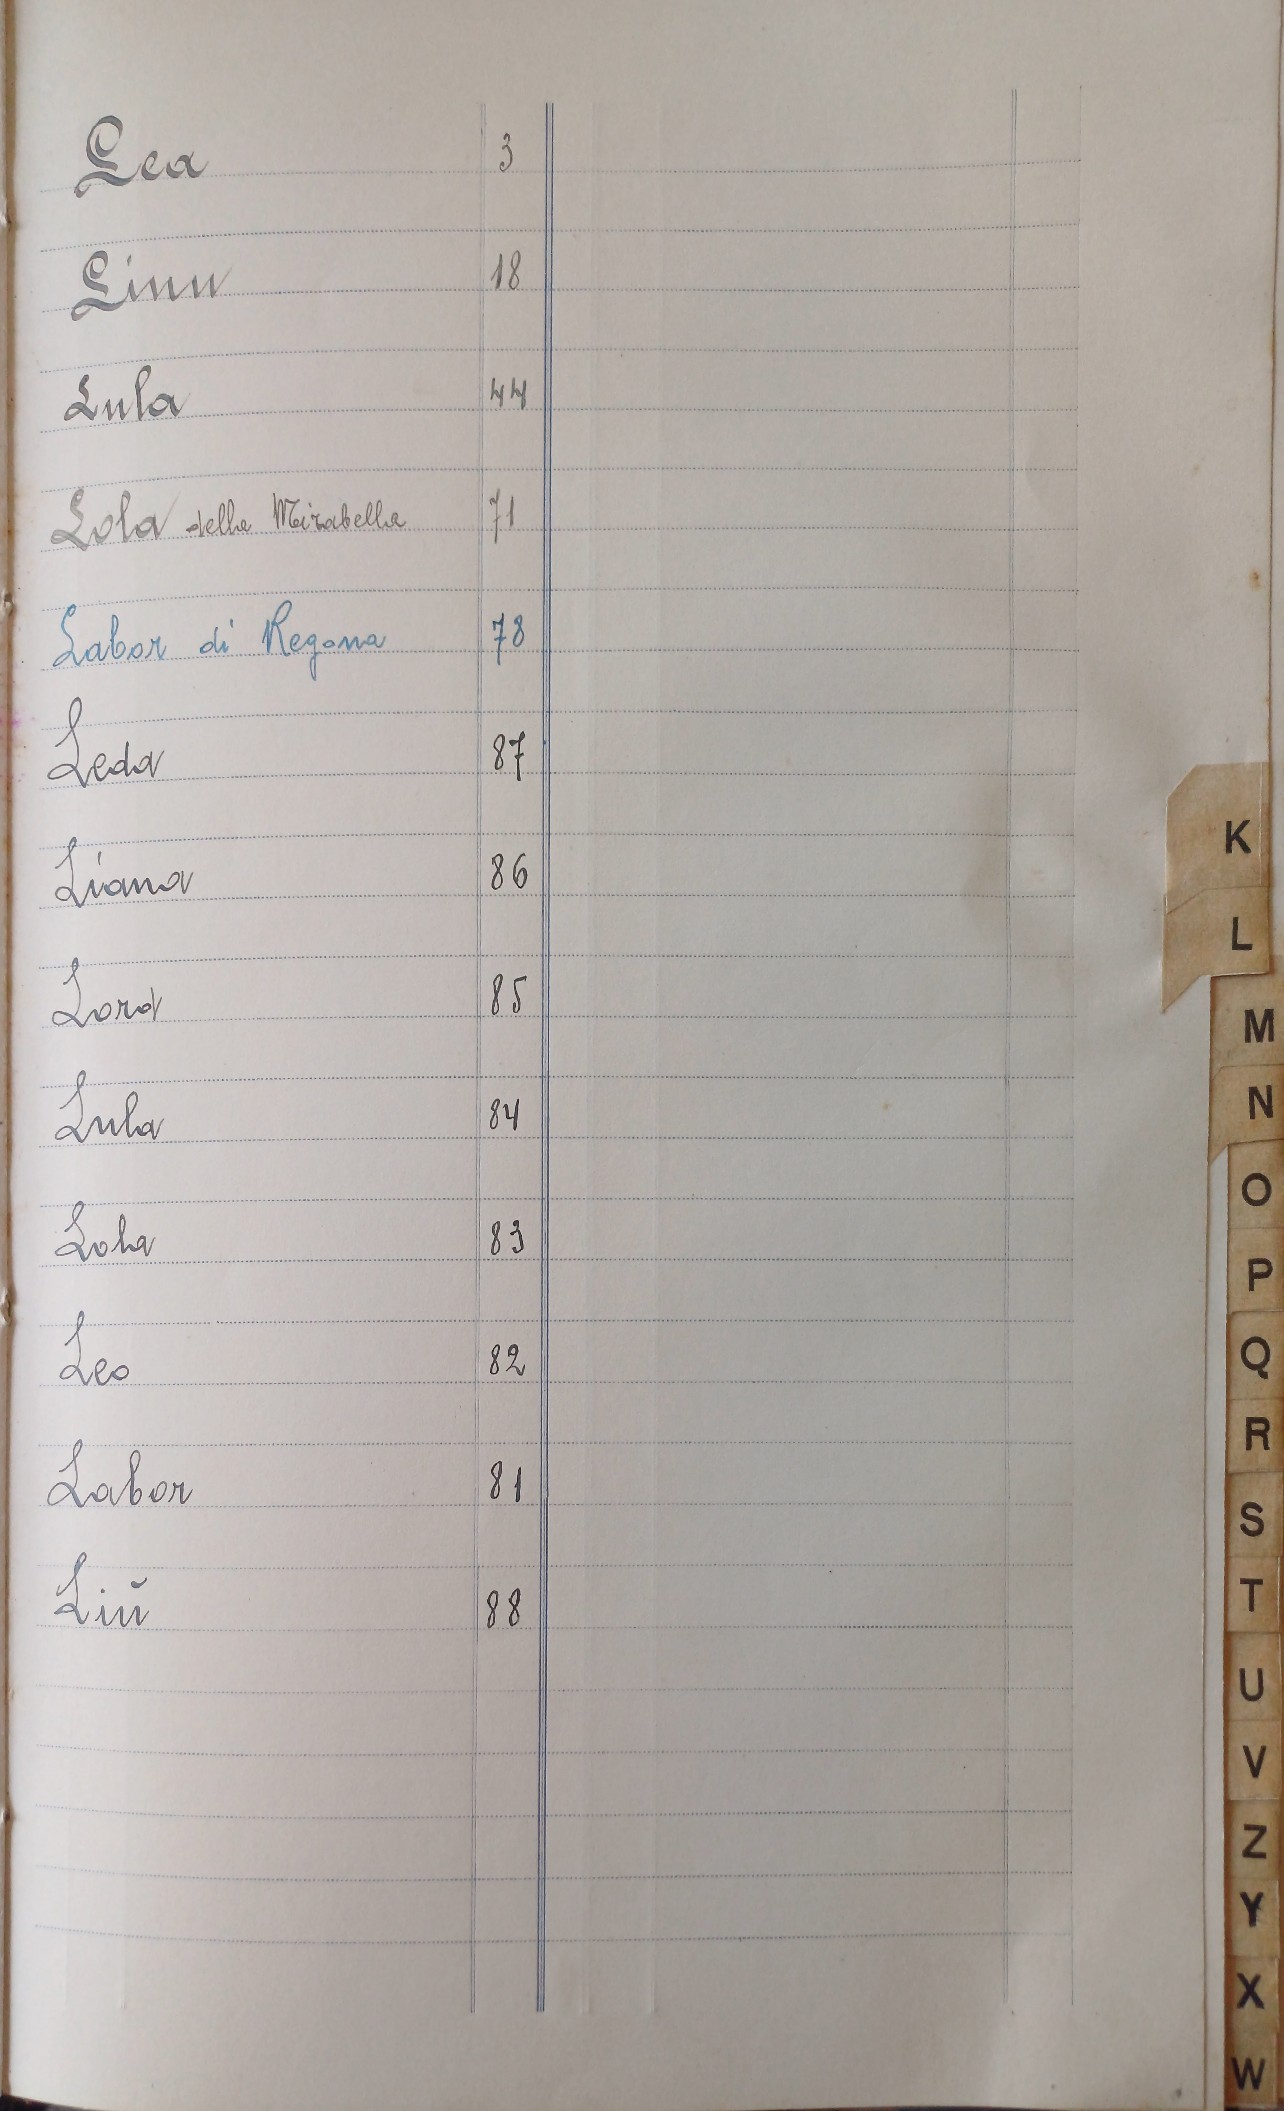 Lea 3
Linu 18
Lula 44
Lola della Mirabella 71
Labor di Regona 78
Leda 87
Liana 86
Lord 85
Lula 84
Lola 83
Leo 82
Labor 81
Liŭ 88
K
L
M
N
O
P
Q
R
S
T
U
V
Z
Y
X
W